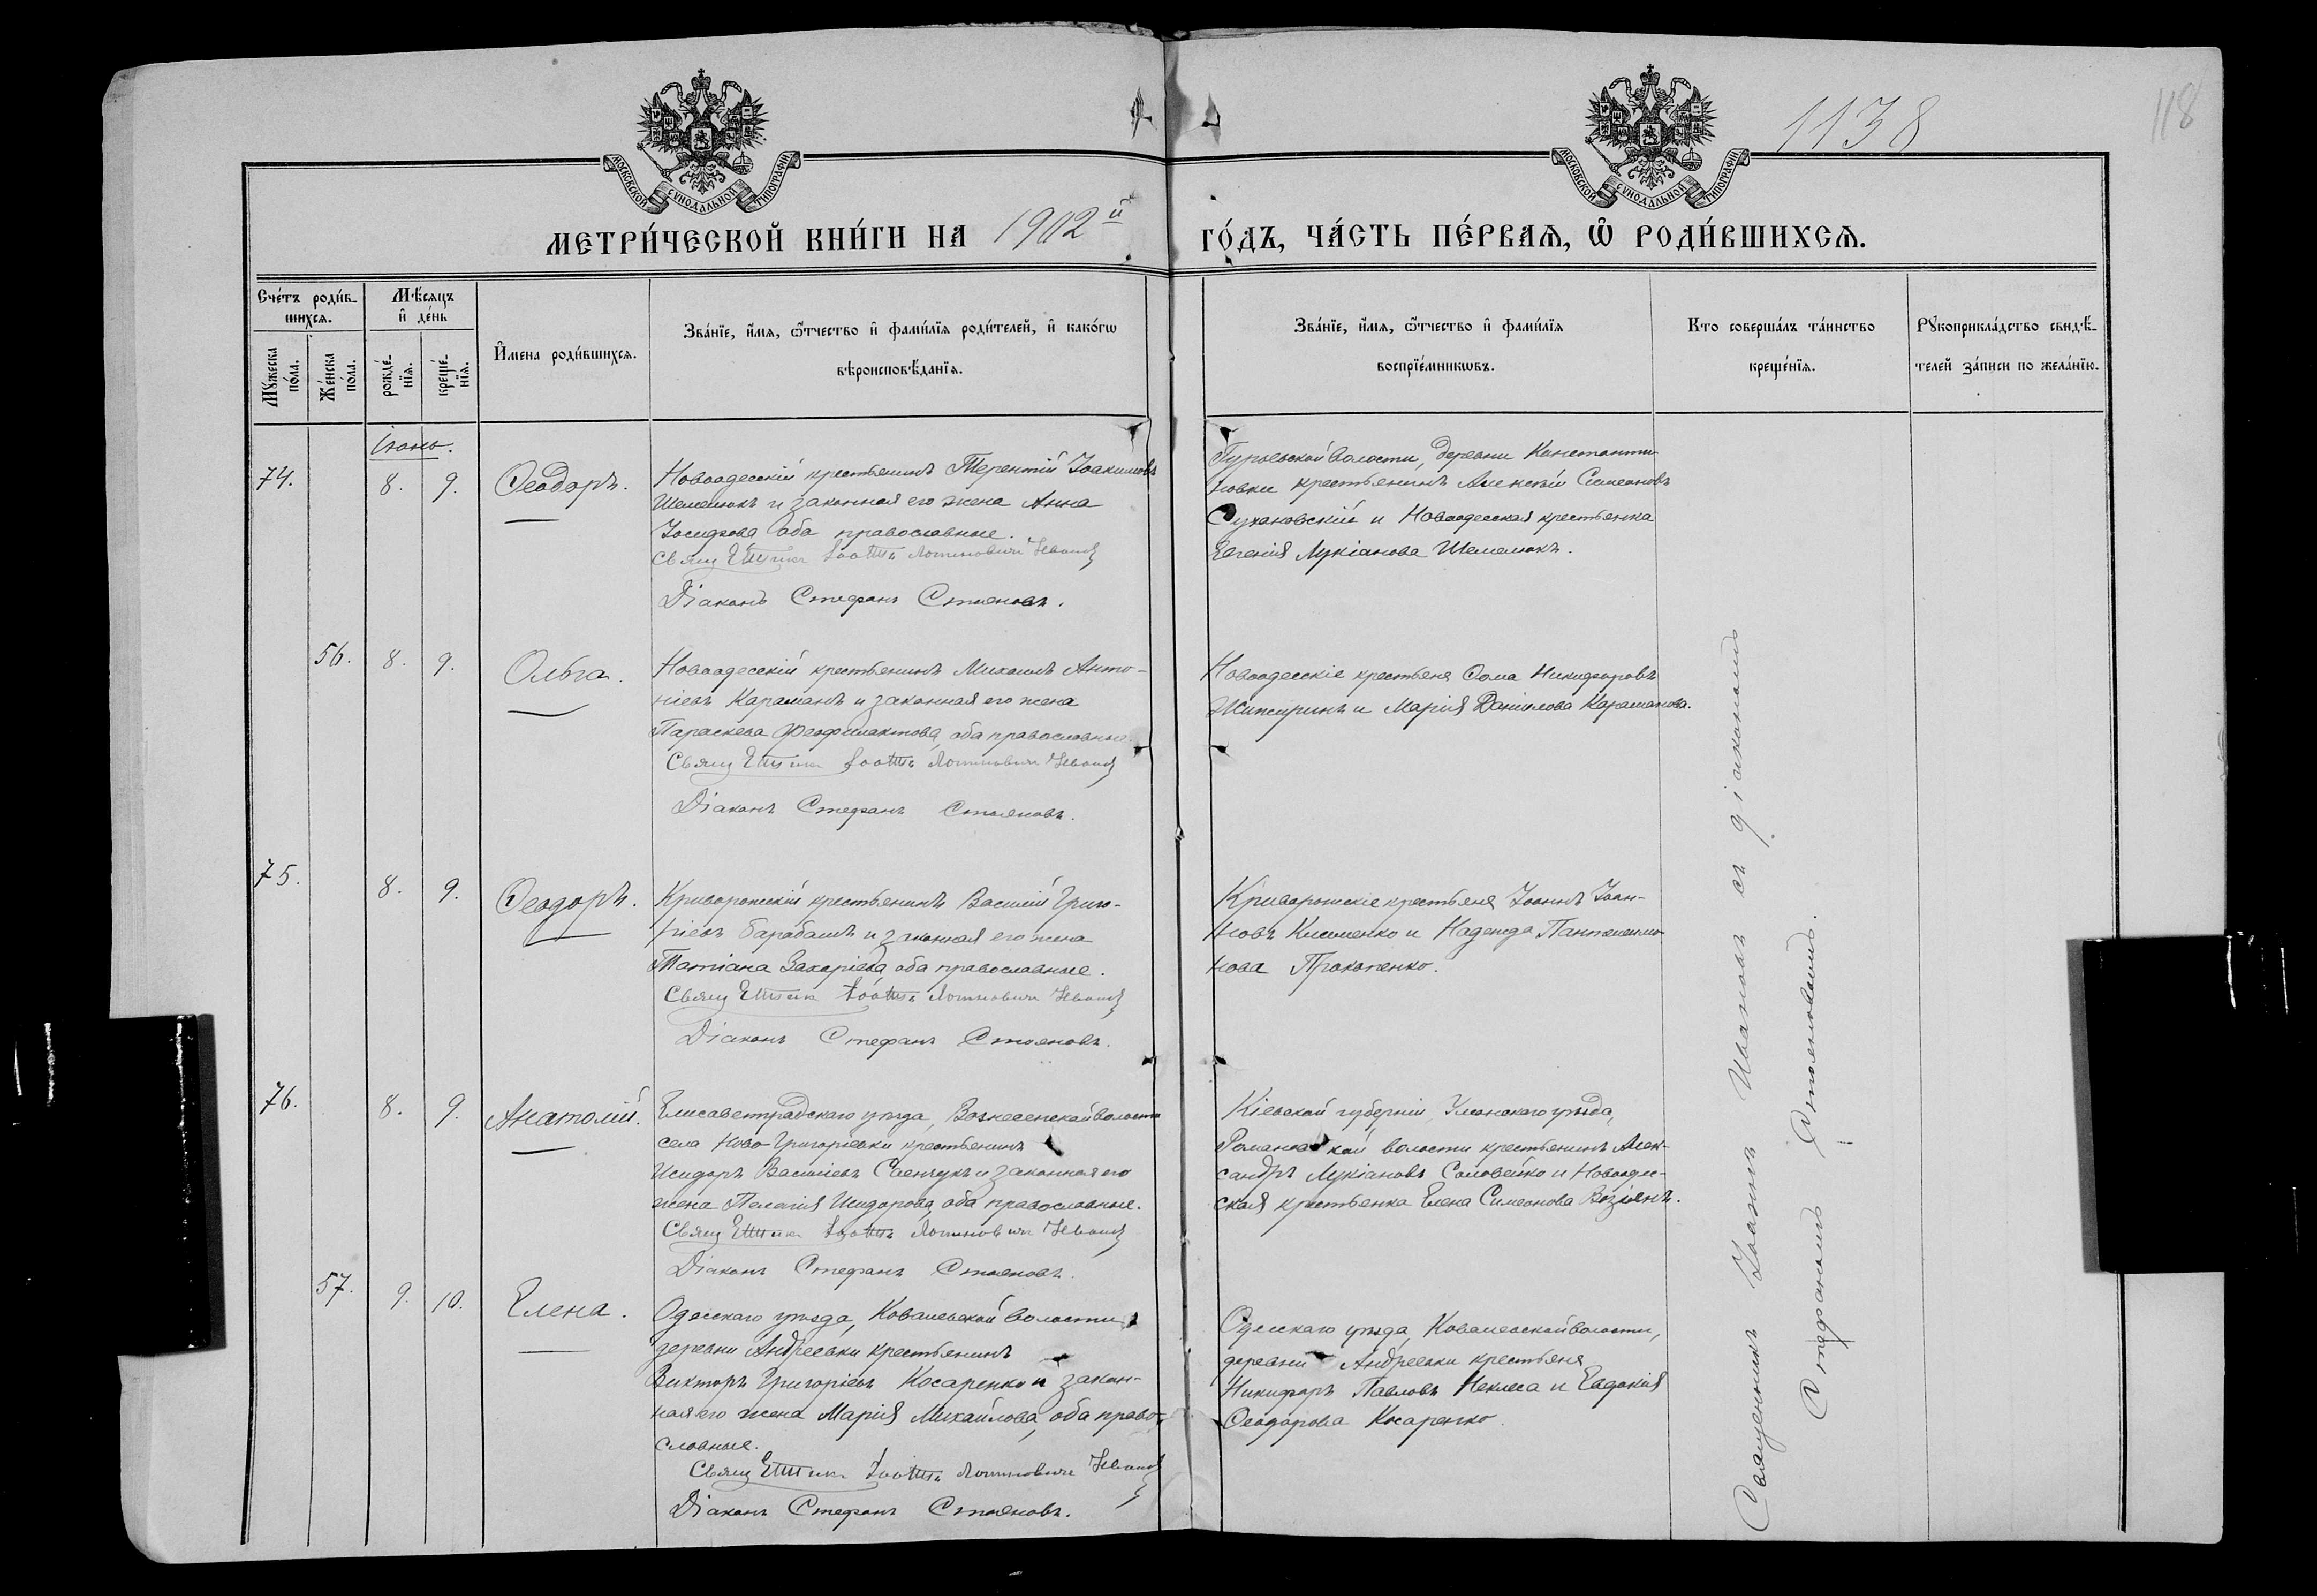 1138
118
МОСКОВСКОЙ СѴНОДАЛЬНОЙ ТИПОГРАФІИ
МОСКОВСКОЙ СѴНОДАЛЬНОЙ ТИПОГРАФІИ
МЕТРИ́ЧЕСКОЙ КНИ́ГИ НА 1902й ГО́ДЪ, ЧА́СТЬ ПЕ́РВАЯ, Ѡ РОДИ́ВШИХСЯ.
Сче́тъ роди́в-
шихся.
Мꙋ́жеска по́ла.
Же́нска по́ла.
Мѣ́сяцъ и де́нь
рожде́-
нїя.
креще́-
нїя.
Имена роди́вшихся.
Зва́нїе, и́мя, ѻ́тчество и фами́лїя роди́телей, и како́гѡ
вѣроисповѣ́данїя.
Зва́нїе, и́мя, ѻ́тчество и фами́лїя
воспрїе́мникѡвъ.
Кто соверша́лъ та́инство
креще́нїя.
Рꙋкоприкла́дство свидѣ́-
телей за́писи по жела́нїю.
Іюнь.
74. 8. 9. Ѳеодоръ.
Новоодесскій крестьянинъ Терентій Іоакимовъ
Шемелюкъ и законная его жена Анна
Іосифова оба православные.
Свящ Іванов
Діаконъ Стефанъ Стояновъ.
Гурьевской волости, деревни Константи-
новки крестьянинъ Алексѣй Симеоновъ
Сухановскій и Новоодесская крестьянка
Евгенія Лукіанова Шемелюкъ.
56. 8. 9. Ольга.
Новоодесскій крестьянинъ Михаилъ Анто-
ніевъ Караманъ и законная его жена
Параскева Феофилактова, оба православные.
Свящ Іванов
Діаконъ Стефанъ Стояновъ.
Новоодесскіе крестьяне Ѳома Никифоровъ
и Марія Даніилова Караманова.
75. 8. 9. Ѳеодоръ.
Криворожскій крестьянинъ Василій Григо-
ріевъ Барабашъ и законная его жена
Татіана Захаріева, оба православные.
Свящ Іванов
Діаконъ Стефанъ Стояновъ.
Криворожскіе крестьяне Іоаннъ Іоан-
новъ Клименко и Надежда Пантелеимо-
нова Прокопенко.
76. 8. 9. Анатолій.
Елисаветградскаго уѣзда, Вознесенской волости
села Ново-Григорьевки крестьянинъ
Исидоръ Василіевъ Савчукъ и законная его
жена Пелагія Исидорова, оба православные.
Свящ Іванов
Діаконъ Стефанъ Стояновъ.
Кіевской губерніи, Уманскаго уѣзда,
Романовской волости крестьянинъ Алек-
сандръ Лукіановъ Соловейко и Новоодес-
ская крестьянка Елена Симеонова Возіянъ.
57. 9. 10. Елена.
Одесскаго уѣзда, Ковалевской волости,
деревни Андреевки крестьянинъ
Викторъ Григоріевъ Косаренко и закон-
ная его жена Марія Михайлова, оба право-
славные.
Свящ Іванов
Діаконъ Стефанъ Стояновъ.
Одесскаго уѣзда, Ковалевской волости,
деревни Андреевки крестьяне
Никифоръ Павловъ Неклеса и Евдокія
Ѳеодорова Косаренко.
Священникъ Іоаннъ Ивановъ съ діакономъ
Стефаномъ Стояновымъ.